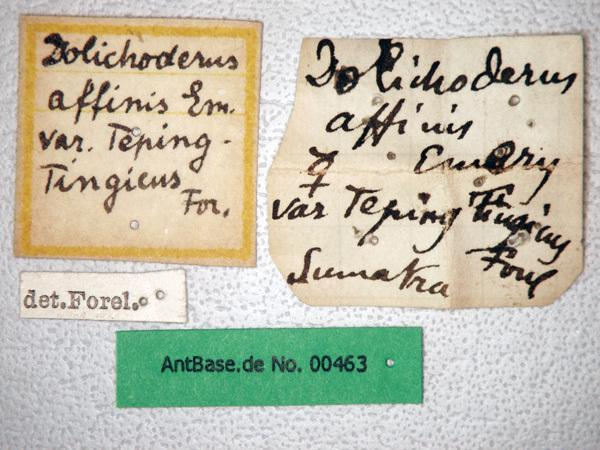 Dolichoderus
affinis Em.
var. Teping-
Tingicus
For.
det. Forel.
Dolichoderus
affinis
☿ Emery
var Teping Tingicus
Sumatra Forel
AntBase.de No. 00463